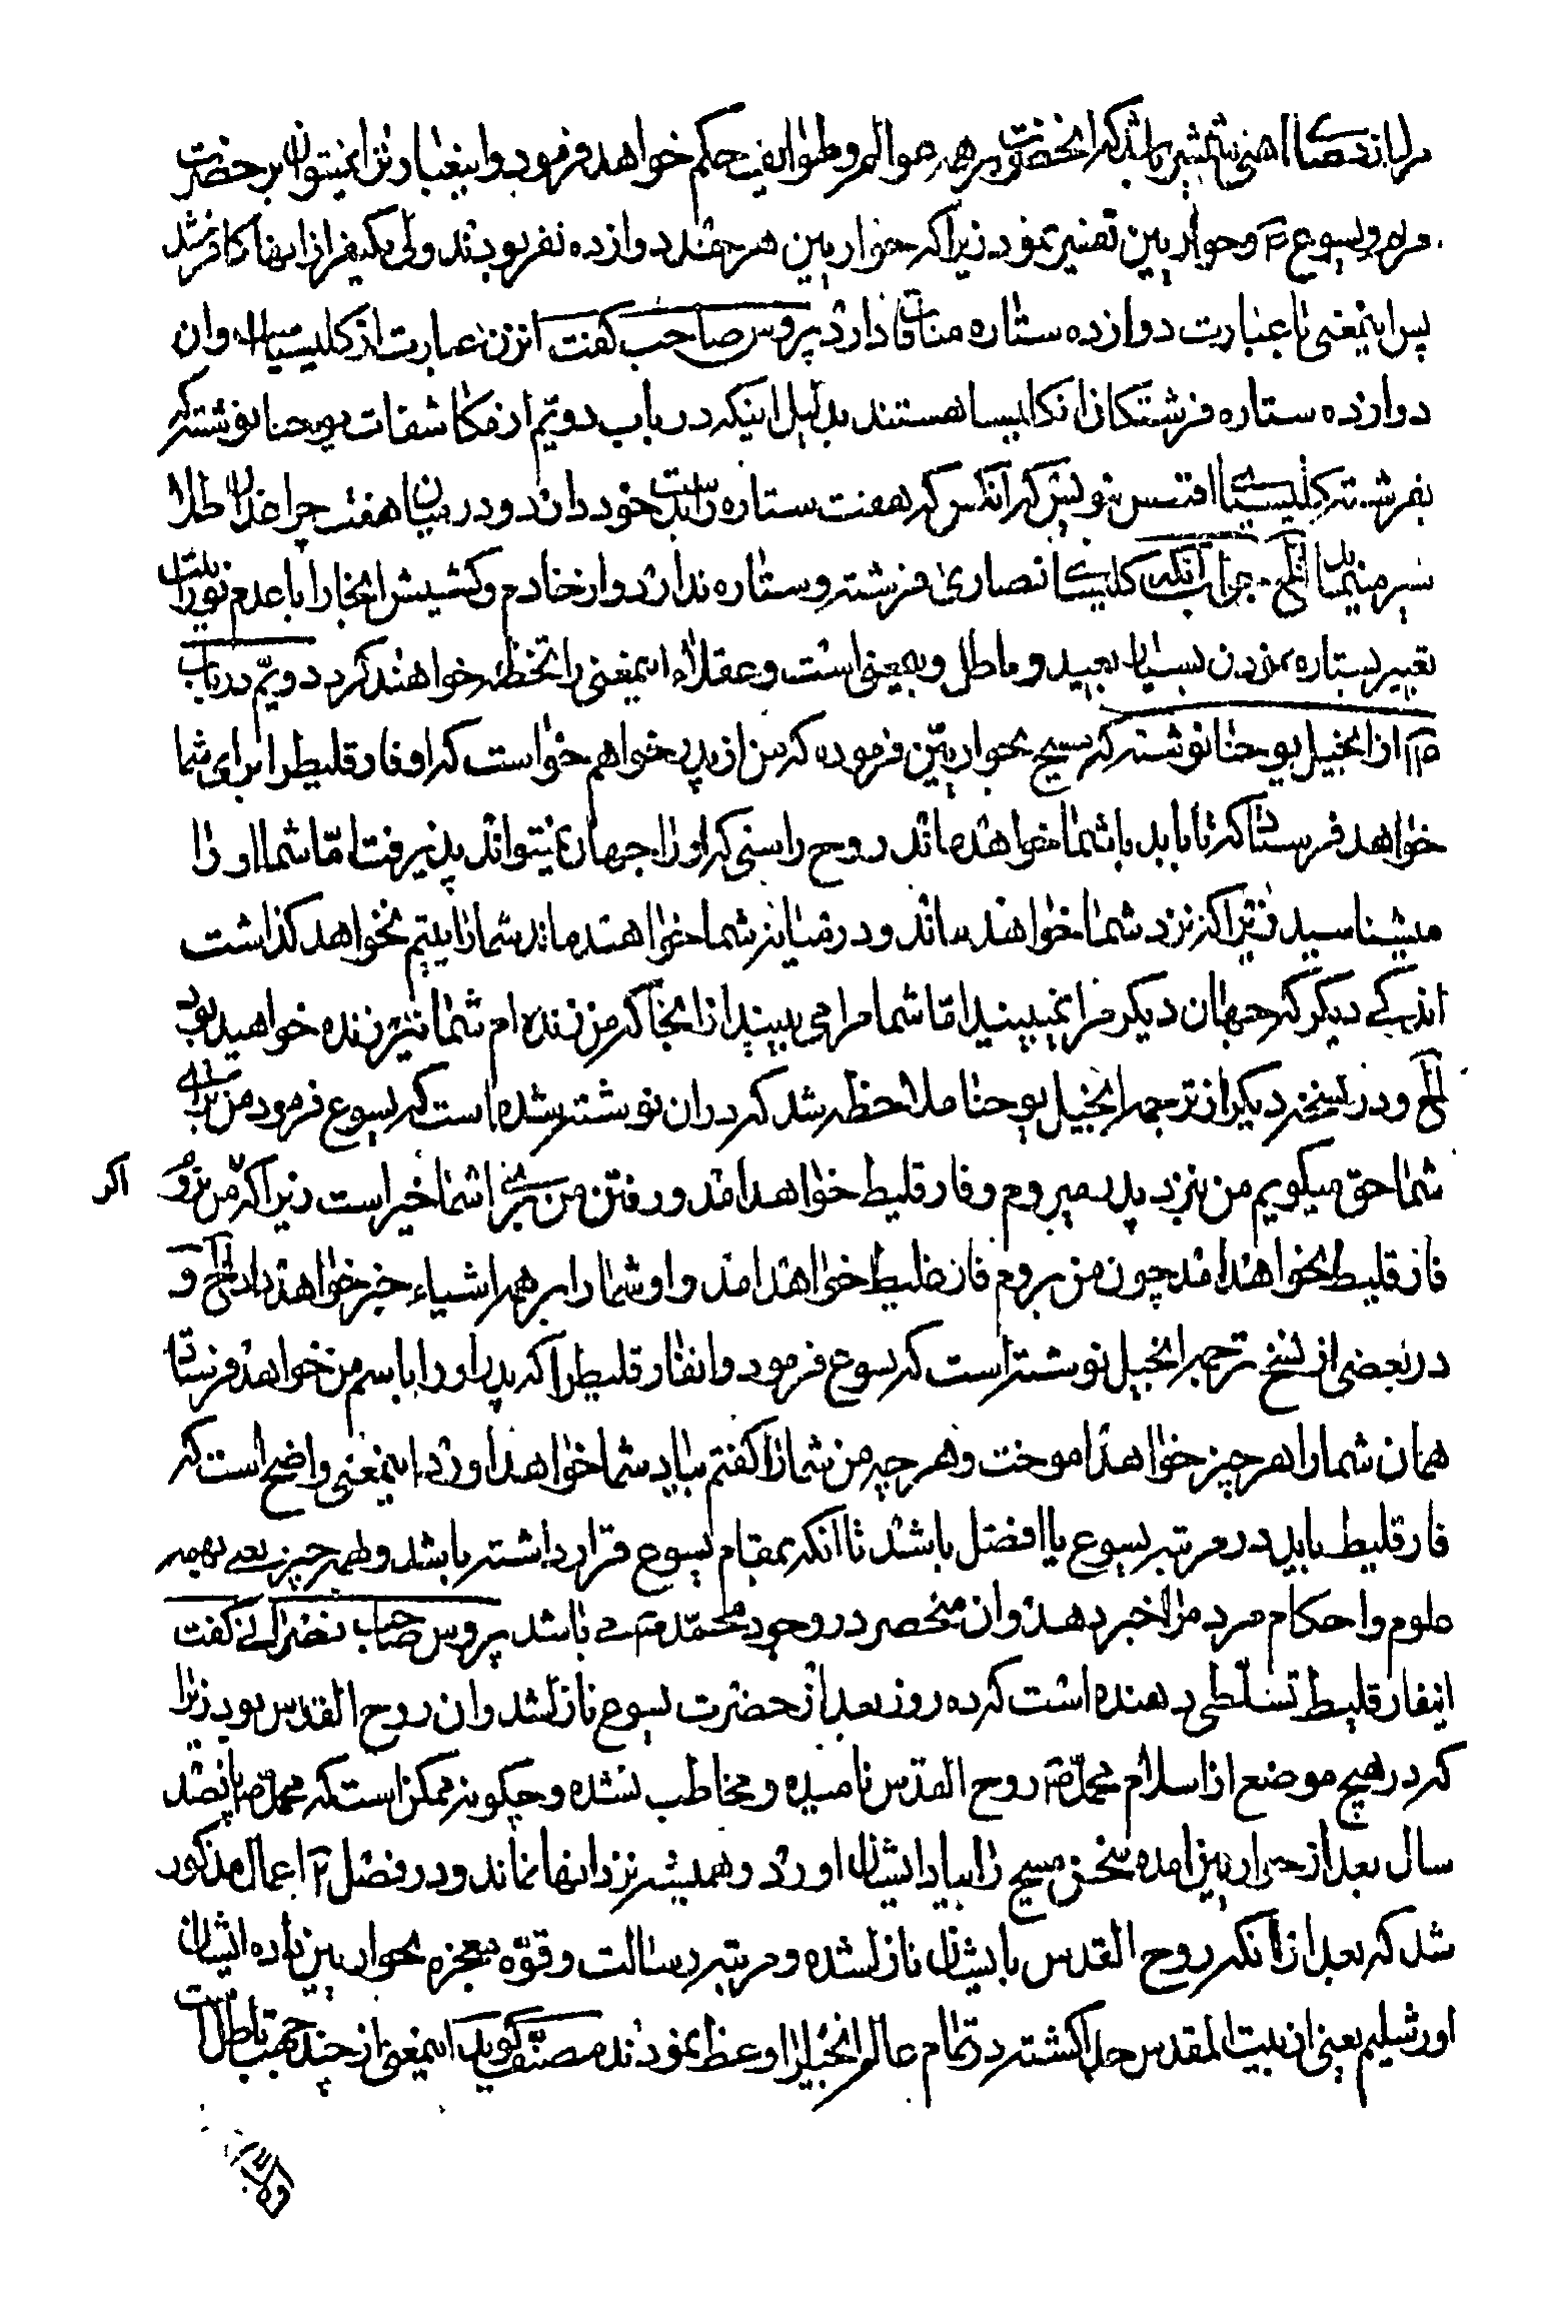 مراد از عصا اهنی شمشیر باشد که انحضرت بر همه عوالم و طوایف حکم خواهد فرمود و اینعبارت را نمیتوان بر حضرت
مریم و یسوع ع و حواریین تفسیر نمود زیرا که حواریین هر چند دوازده نفر بودند ولی یکنفر از انها کافر شد
پس اینمعنی با عبارت دوازده ستاره منافات دارد پروس صاحب گفت انزن عبارت از کلیسیا است و ان
دوازده ستاره فرشتگان ان کلیسا هستند بدلیل اینکه در باب دویم از مکاشفات یوحنا نوشته که
بفرشته کلیسیا افسس بنویس که آنکس که هفت ستاره را بدست خود دارد و در میان هفت چراغدان طلا
سیر مینماید الخ جواب آنکه کلیسیا نصاری فرشته و ستاره ندارد و از خادم و کشیش انجا را با عدم نورانیت
تعبیر بستاره نمودن بسیار بعید و باطل و بیمعنی است و عقلاء اینمعنی را تخطئه خواهند کرد دویم در باب
۱۴ از انجیل یوحنا نوشته که مسیح بحواریین فرموده که من از پدر خواهم خواست که او فارقلیط را برای شما
خواهد فرستاد که تا بابد با شما خواهد ماند روح راستی که او را جهان نمیتواند پذیرفت اما شما او را
میشناسید زیرا که نزد شما خواهد ماند و در میانه شما خواهد ماند شما را یتیم نخواهد گذاشت
اندکے دیگر که جهان دیگر مرا نمیبینید اما شما مرا می بینید از انجا که من زنده ام شما نیز زنده خواهید بود
الخ و در نسخه دیگر از ترجمه انجیل یوحنا ملاحظه شد که در ان نوشته شده است که یسوع فرمود من برای
شما حق میگویم من بنزد پدر میروم و فارقلیط خواهد امد و رفتن من برای شما خیر است زیرا که من نروم اکر
فارقلیط نخواهد امد چون من بروم فارقلیط خواهد امد و او شما را بر همه اشیاء خبر خواهد داد الخ و
در بعضی از نسخ ترجمه انجیل نوشته است که یسوع فرمود و انفارقلیط را که پدر او را باسم من خواهد فرستاد
همان شما را هر چیز خواهد اموخت و هر چه من شما را گفتم بیاد شما خواهد اورد اینمعنی واضح است که
فارقلیط باید در مرتبه یسوع یا افضل باشد تا انکه بمقام یسوع قرار داشته باشد و بهر چیز یعنی بهمه
علوم و احکام مردم را خبر دهد و ان منحصر در وجود محمد ص مے باشد پروس صاحب نصرانی گفت
اینفارقلیط تسلی دهنده است که ده روز بعد از حضرت یسوع نازلشد و ان روح القدس بود زیرا
که در هیچ موضع از اسلام محمد ص روح القدس نامیده و مخاطب نشده و چگونه ممکن است که محمد ص پانصد
سال بعد از حواریین امده سخن مسیح را بیاد ایشان اورد و همیشه نزد انها نماند و در فصل ۲ اعمال مذکور
شد که بعد از انکه روح القدس بایشان نازلشده و مرتبه رسالت و قوّه معجزه بحواریین داده ایشان
اورشلیم یعنی از بیت المقدس جدا گشته در تمام عالم انجیل را وعظ نمودند مصنّف گوید اینمعنی از چند جهت باطل است
اولا